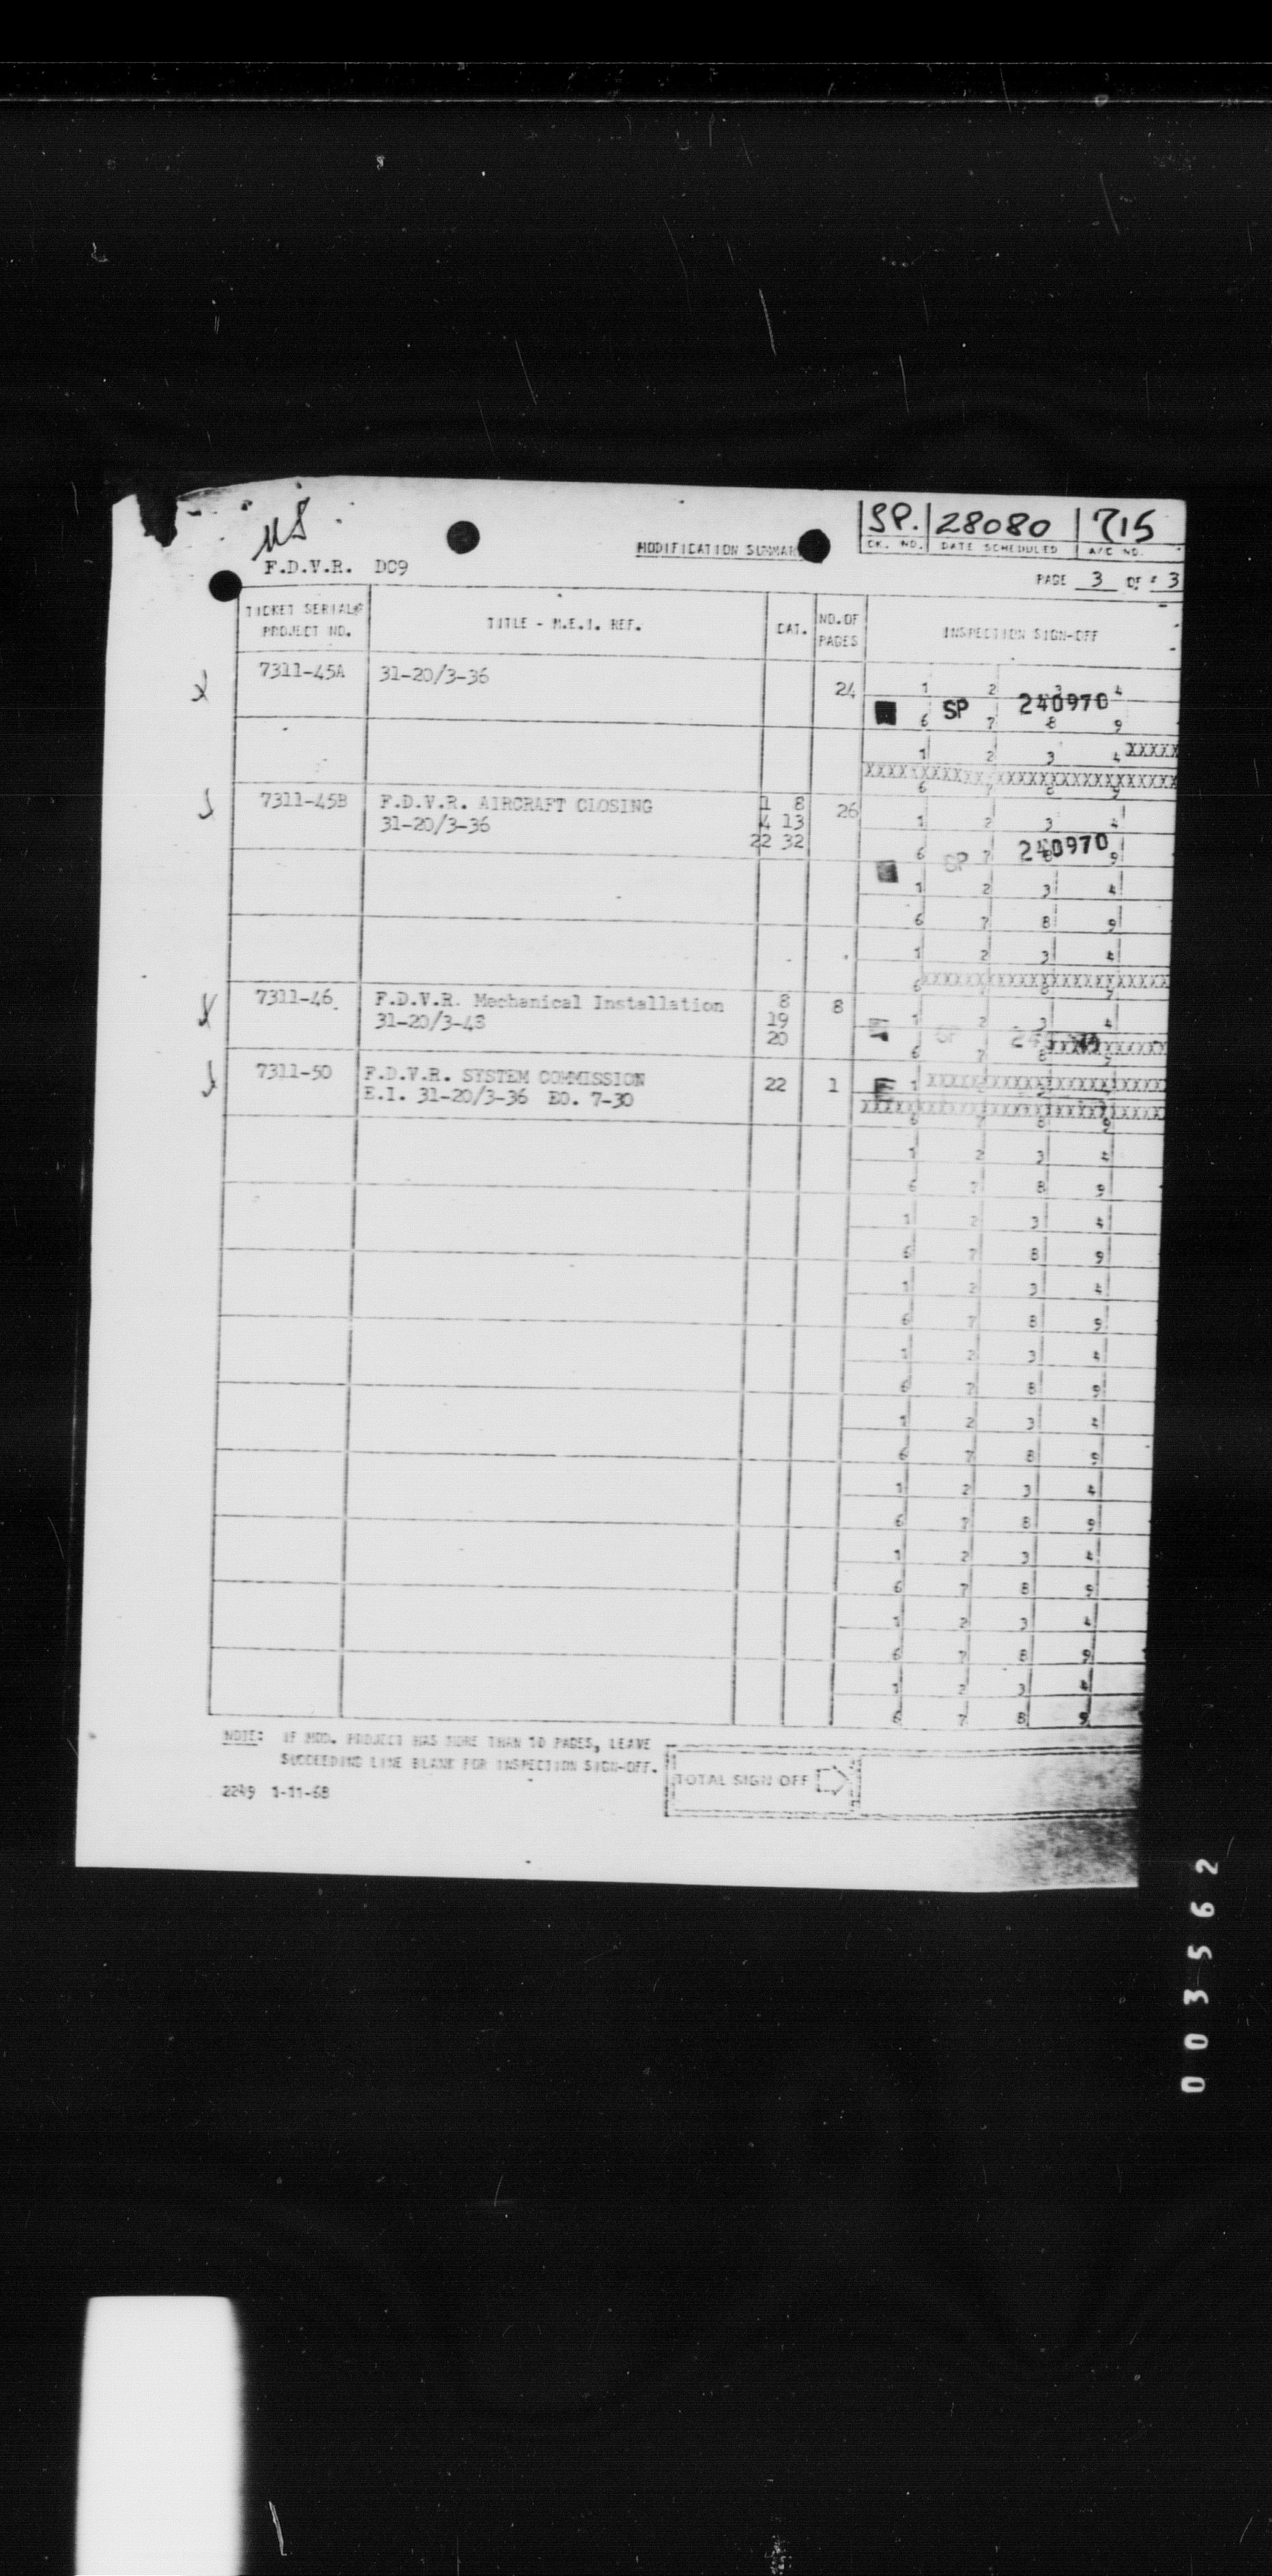 SP. 28080 715
MODIFICATION SUMMAR
CK. NO. DATE SCHEDULED A/C NO.
F.D.V.R. DC9
PAGE 3 OF 3
TICKET SERIAL#
PROJECT NO.
TITLE - M.E.I. REF.
CAT.
NO.OF
PAGES
INSPECTION SIGN-OFF
7311-45A 31-20/3-36 24
1 2 3 4
SP 240970
6 7 8 9
1 2 3 4 XXXXX
XXXXXXXXXXXXXXXXXXXXXXXXXXX
6 7 8 9
7311-45B F.D.V.R. AIRCRAFT CLOSING 1 8 26
31-20/3-36 4 13
22 32
1 2 3 4
SP 240970
6 7 8 9
1 2 3 4
6 7 8 9
1 2 3 4
6 7 8 9
7311-46 F.D.V.R. Mechanical Installation 8 8
31-20/3-48 19
20
1 2 3 4
SP
6 7 8 9
7311-50 F.D.V.R. SYSTEM COMMISSION 22 1
E.I. 31-20/3-36 EO. 7-30
1
6 7 8 9
1 2 3 4
6 7 8 9
1 2 3 4
6 7 8 9
1 2 3 4
6 7 8 9
1 2 3 4
6 7 8 9
1 2 3 4
6 7 8 9
1 2 3 4
6 7 8 9
1 2 3 4
6 7 8 9
1 2 3 4
6 7 8 9
1 2 3 4
6 7 8 9
NOTE: IF MOD. PROJECT HAS MORE THAN 10 PAGES, LEAVE
SUCCEEDING LINE BLANK FOR INSPECTION SIGN-OFF.
TOTAL SIGN OFF
2249 1-11-68
003562